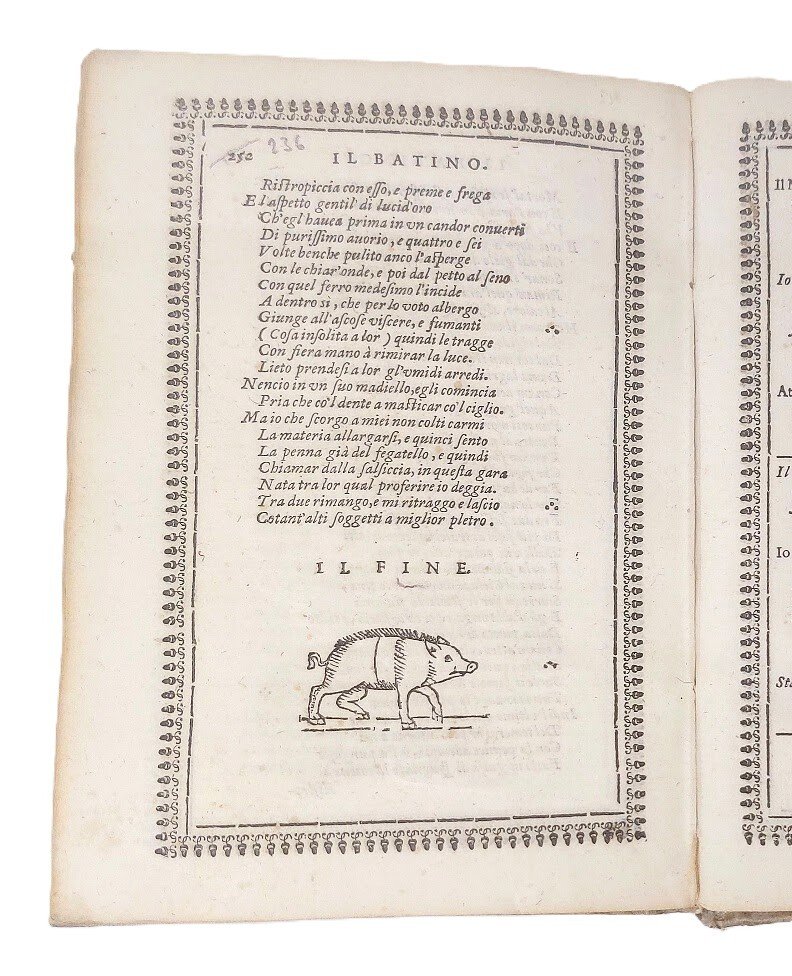 252 236
IL BATINO.
Riſtropiccia con eſſo, e preme e frega
E l'aſpetto gentil di lucid'oro
Ch'egl hauea prima in vn candor conuerti
Di puriſſimo auorio, e quattro e ſei
Volte benche pulito anco l'aſperge
Con le chiar'onde, e poi dal petto al ſeno
Con quel ferro medeſimo l'incide
A dentro sì, che per lo voto albergo
Giunge all'aſcoſe viſcere, e fumanti
( Coſa inſolita a lor ) quindi le tragge
Con fiera mano à rimirar la luce.
Lieto prendeſi a lor gl'vmidi arredi.
Nencio in vn ſuo madiello, egli comincia
Pria che co'l dente a maſticar co'l ciglio.
Ma io che ſcorgo a miei non colti carmi
La materia allargarſi, e quinci ſento
La penna già del fegatello, e quindi
Chiamar dalla ſalſiccia, in queſta gara
Nata tra lor qual proferire io deggia.
Tra due rimango, e mi ritraggo e laſcio
Cotant'alti ſoggetti a miglior pletro.
IL FINE.
Il
Io
At
Il
Io